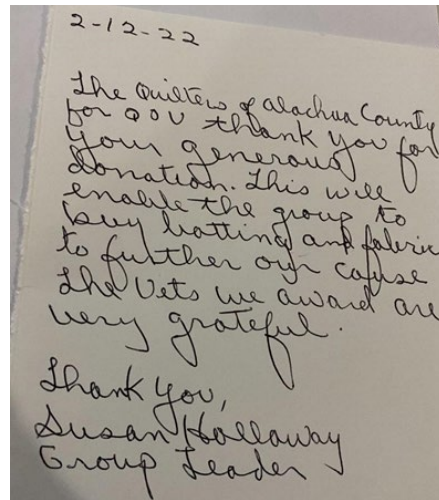 2-12-22
The Quilters of Alachua County
for QOV thank you for
your generous
donation. This will
enable the group to
buy batting and fabric
to further our cause
The Vets we award are
very grateful.
Thank you,
Susan Hollaway
Group Leader